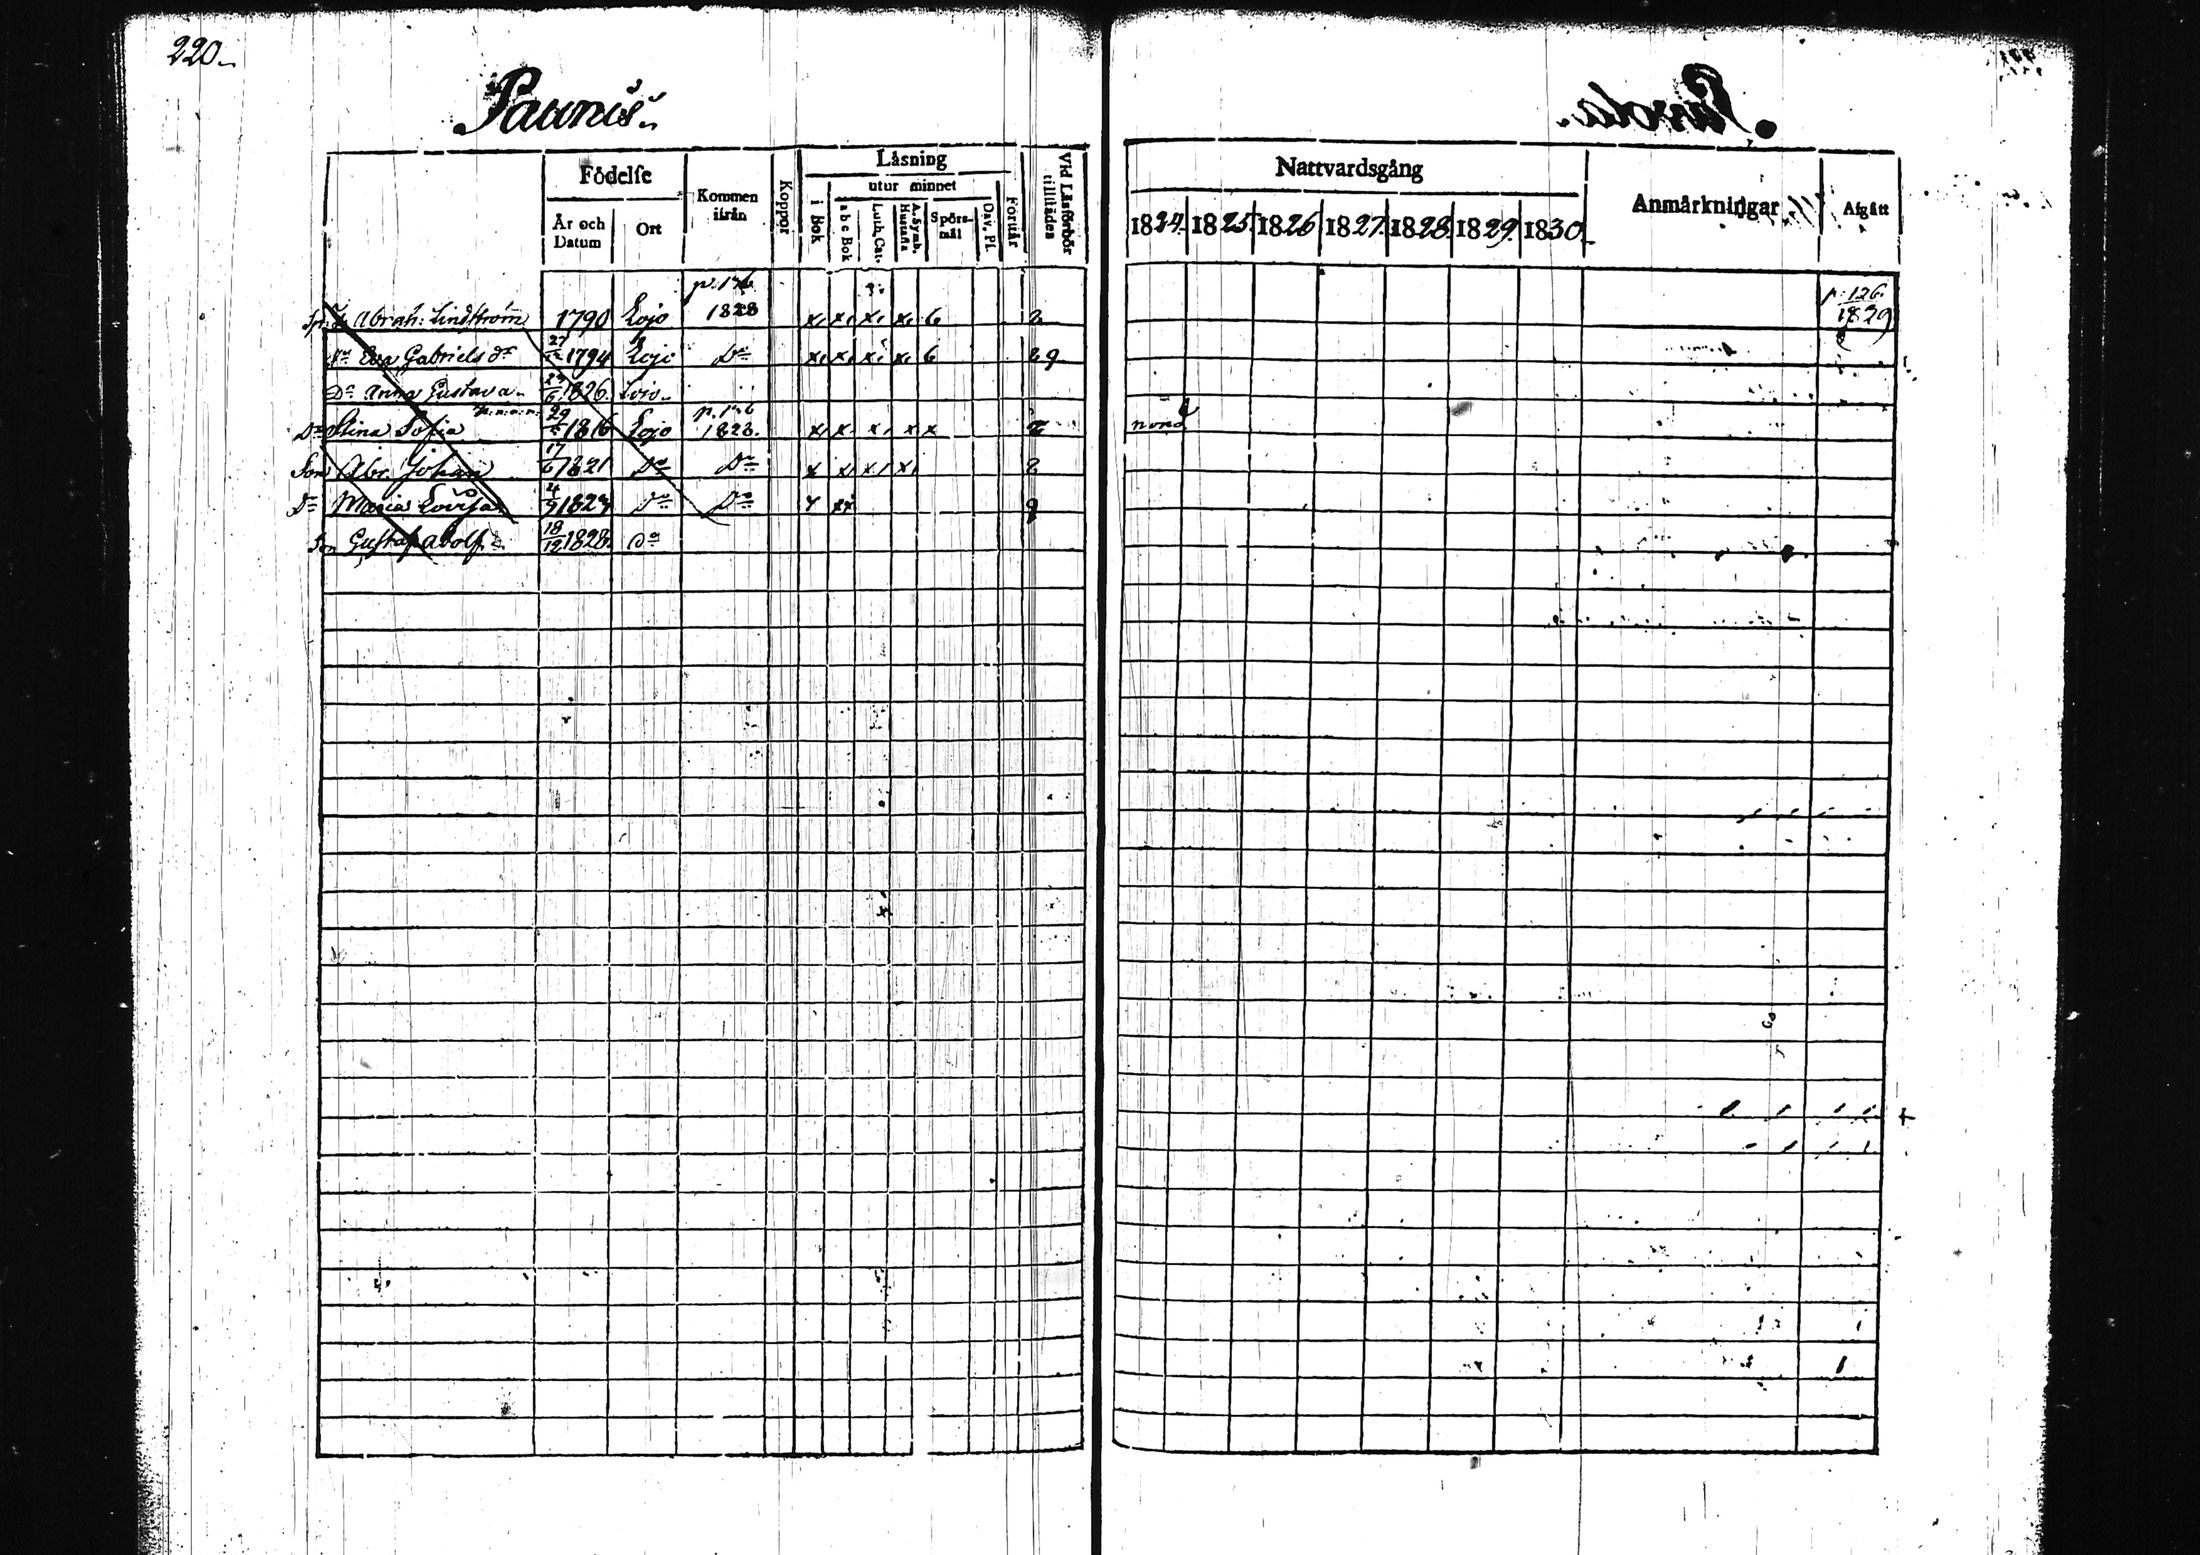 220.
Paunis.
Födelse
Kommen ifrån
Koppor
Läsning
utur minnet
Förstår
Vid Läsförhör tillstädes
År och Datum
Ort
i Bok
a b c Bok
Luth. Cat.
A. Symb. Hustafla
Spörsmål
Dav. Ps.
Nattvardsgång
Anmärkningar
Afgått
1824. 1825. 1826 1827. 1828. 1829. 1830.
Abrah: Lindström 1790 Lojo 1828 x x x x 6 2 p. 126 1829
Eva Gabriels dr 1794 Lojo Do x x x x 6 2 9
Dr Anna Gustava 1826. Lojo.
Dr Stina Sofia 29 1816 Lojo 1828. x x x x x 2
Son Abr. Johan 17/6 1821 Do Do x x x x 2
Dr Maria Lovisa Do Do
Son Gustaf Adolf 18/12 1828. do